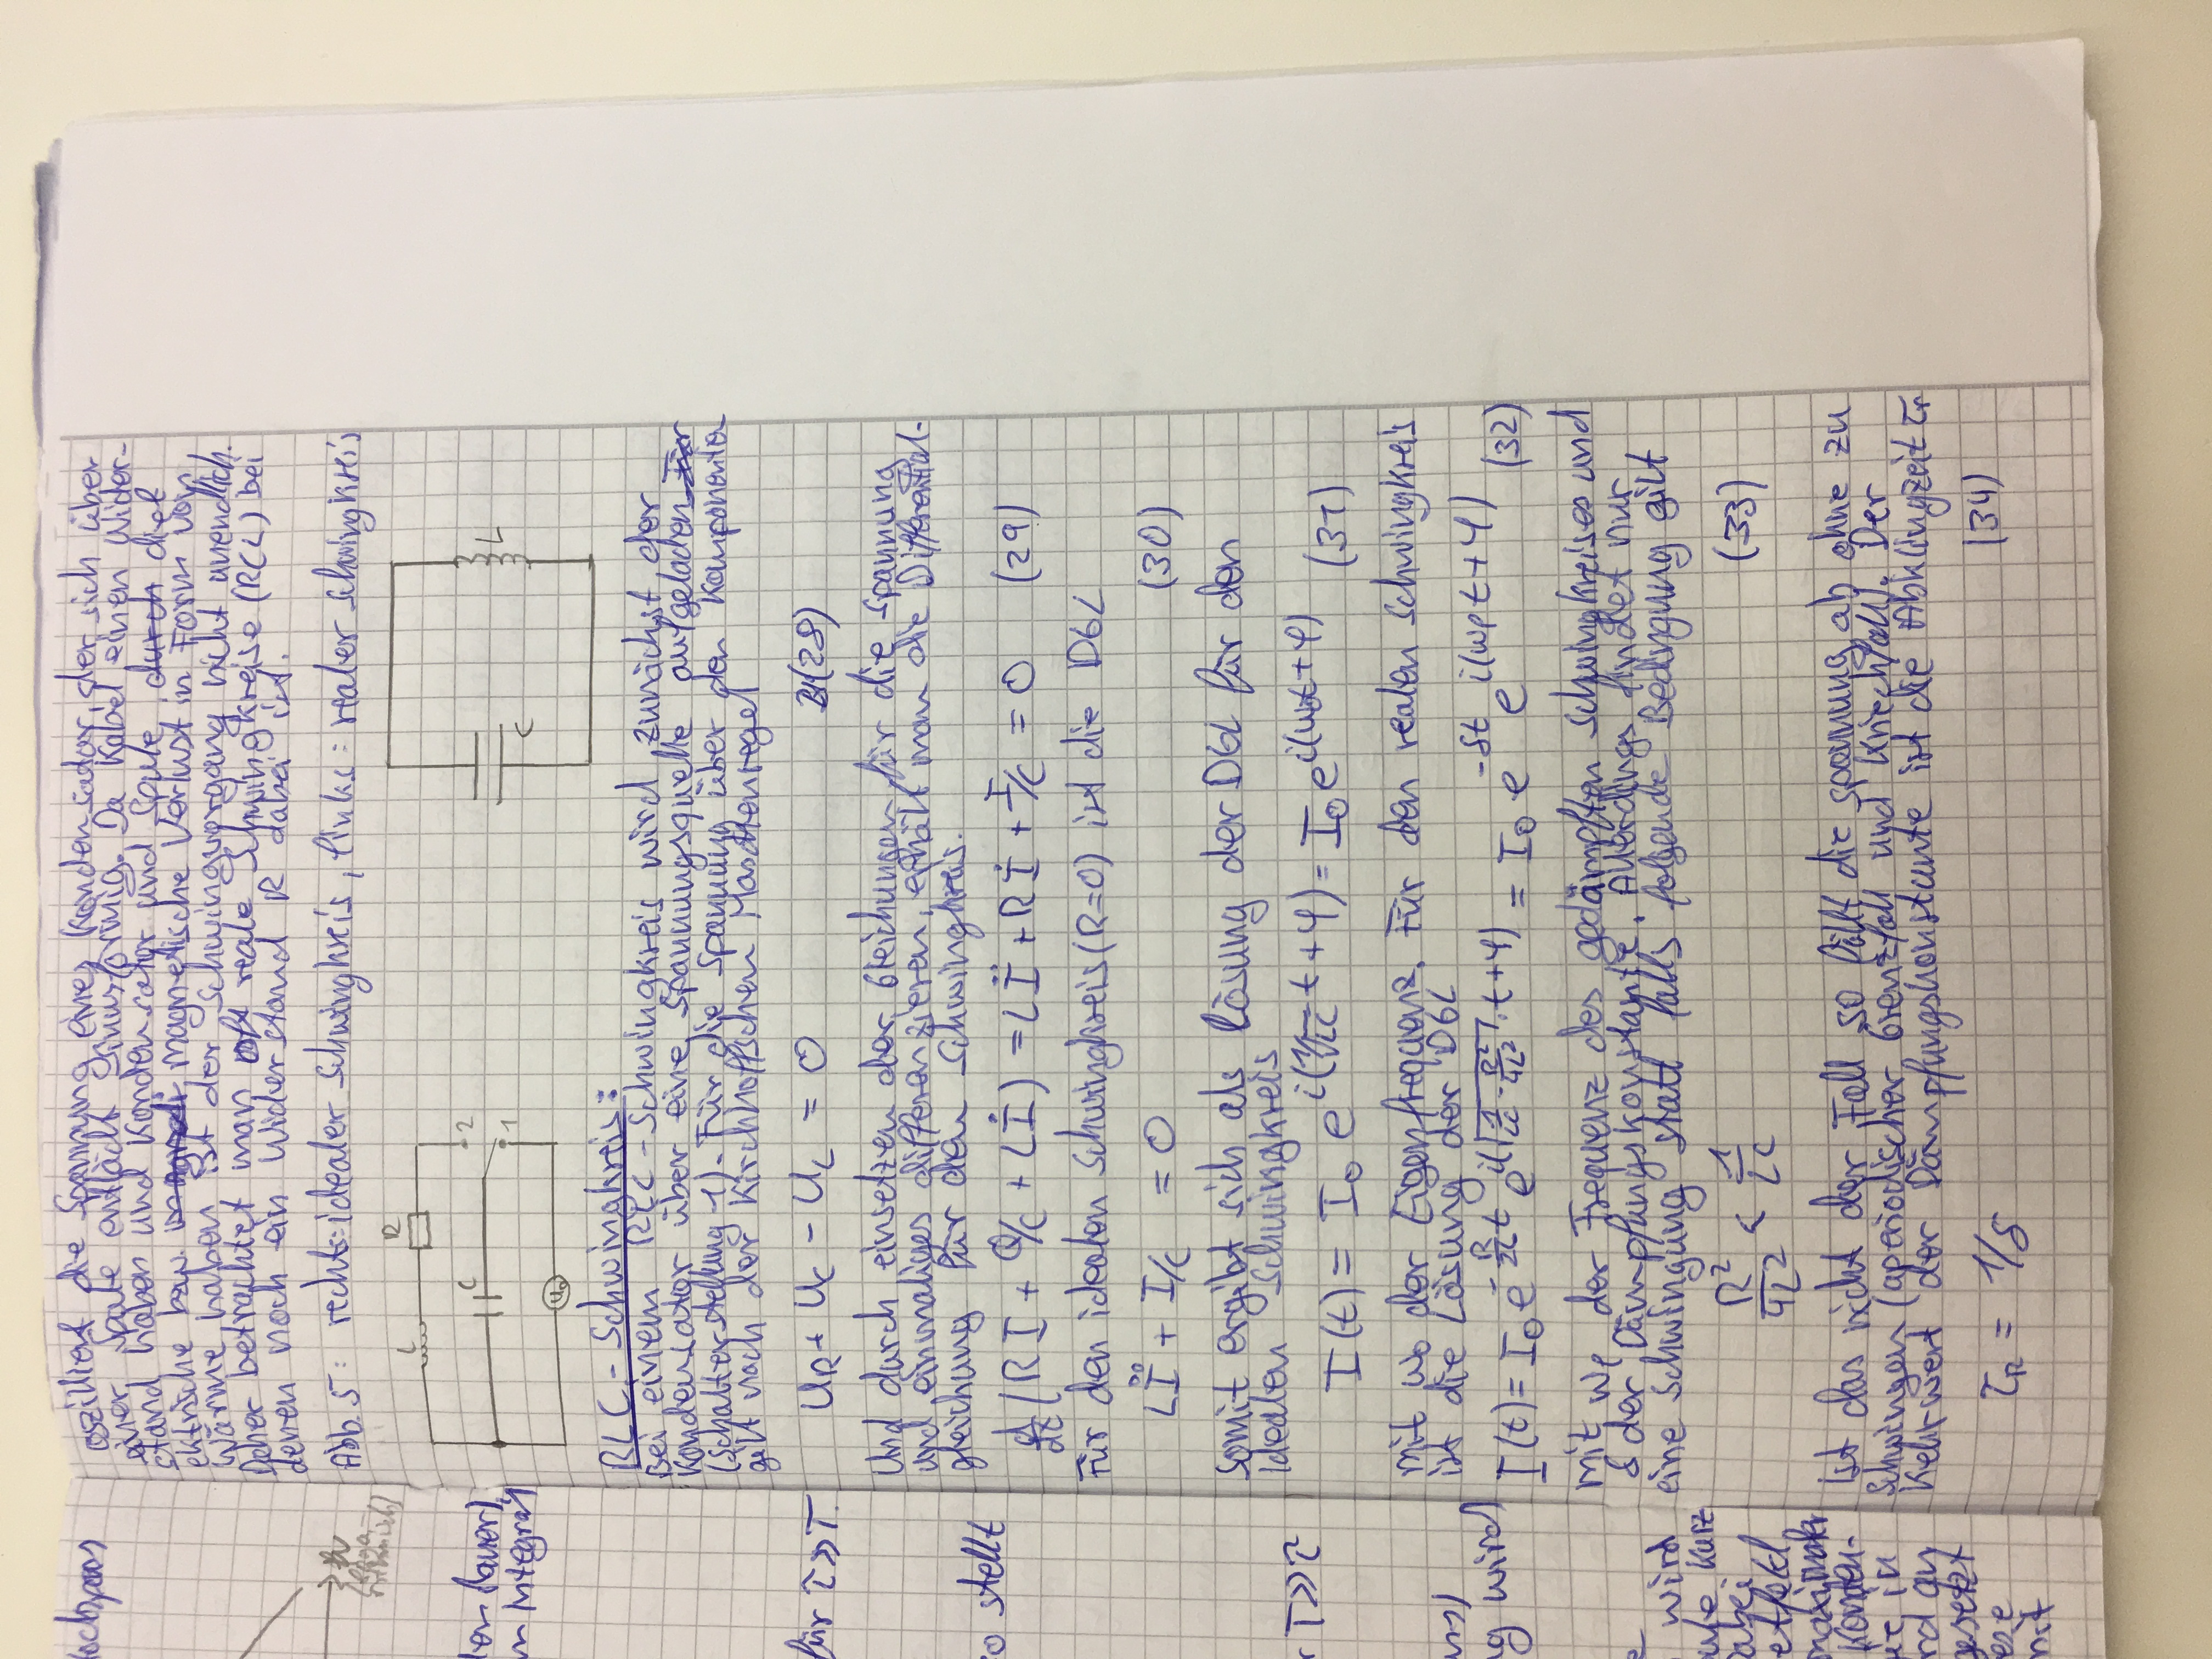 ochpass
(Loga-
rithmisch)
für τ>>T.
o stellt
r T>>τ
ng wird
wird
Kurz
abei
maximaler
Konden-
rd an
gesetzt
ese
mit
oszilliert die Spannung eines Kondensator, der sich über
einer Spule entlädt sinusförmig. Da Kabel einen Wider-
stand haben und Kondensator und Spule durch diel
ektrische bzw. magnetische Verlust in Form von
Wärme haben ist der Schwingvorgang nicht unendlich.
Daher betrachtet man oft reale Schwingkreise (RCL) bei
denen noch ein Widerstand R dabei ist.
Abb. 5: rechts: idealer Schwingkreis, links: realer Schwingkreis
L R
C 2
1
U₀
C L
RLC-Schwingkreis:
Bei einem RLC-Schwingkreis wird zunächst der
Kondensator über eine Spannungsquelle aufgeladen Für
(Schalterstellung 1). Für die Spannung über den Komponenten
gilt nach der Kirchhoffschen Maschenregel
U_R + U_C - U_L = 0 (28)
Und durch einsetzen der Gleichungen für die Spannung
und einmaliges differenzieren, erhält man die Differential-
gleichung für den Schwingkreis.
d/dt (RI + Q/C + Lİ) = LÏ + Rİ + I/C = 0 (29)
Für den idealen Schwingkreis (R=0) ist die DGL
LÏ + I/C = 0 (30)
Somit ergibt sich als Lösung der DGL für den
idealen Schwingkreis
I(t) = I₀ e^{i(1/√LC t + φ)} = I₀ e^{i(ω₀t+φ)} (31)
mit ω₀ der Eigenfrequenz. Für den realen Schwingkreis
ist die Lösung der DGL
I(t) = I₀ e^{-R/2L t} e^{i(√(1/LC - R²/4L²) · t + φ)} = I₀ e^{-δt} e^{i(ω_f t + φ)} (32)
mit ω_f der Frequenz des gedämpften Schwingkreises und
δ der Dämpfungskonstante. Allerdings findet nur
eine Schwingung statt falls folgende Bedingung gilt
R²/4L² < 1/LC (33)
Ist das nicht der Fall so fällt die spannung ab ohne zu
Schwingen (aperiodischer Grenzfall und Kriechfall). Der
Kehrwert der Dämpfungskonstante ist die Abklingzeit τ_r
τ_R = 1/δ (34)